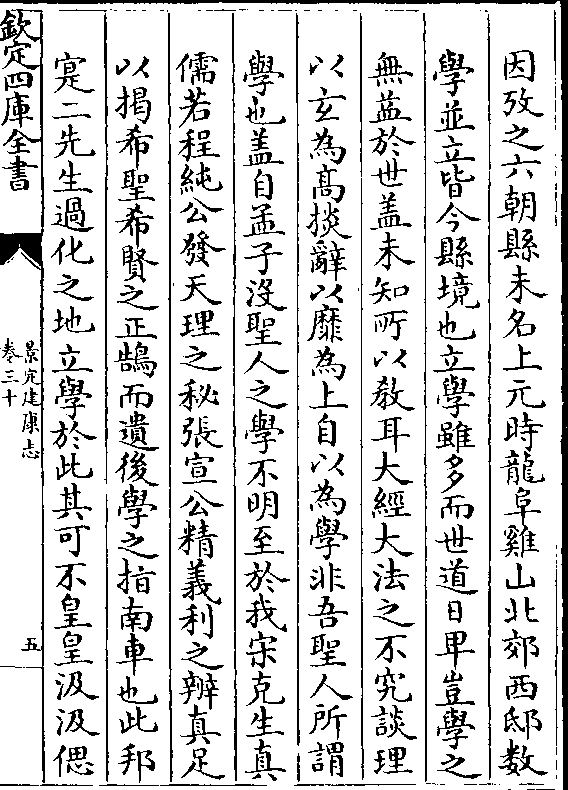 因攷之六朝縣未名上元時龍阜雞山北郊西邸数
學並立皆今縣境也立學雖多而世道日卑豈學之
無益於世盖未知所以教耳大經大法之不究談理
以玄為髙掞辭以靡為上自以為學非吾聖人所謂
學也盖自孟子沒聖人之學不明至於我宋克生真
儒若程純公發天理之秘張宣公精義利之辨真足
以揭希聖希賢之正鵠而遺後學之指南車也此邦
寔二先生過化之地立學於此其可不皇皇汲汲偲
欽定四庫全書
景定建康志
卷三十
五